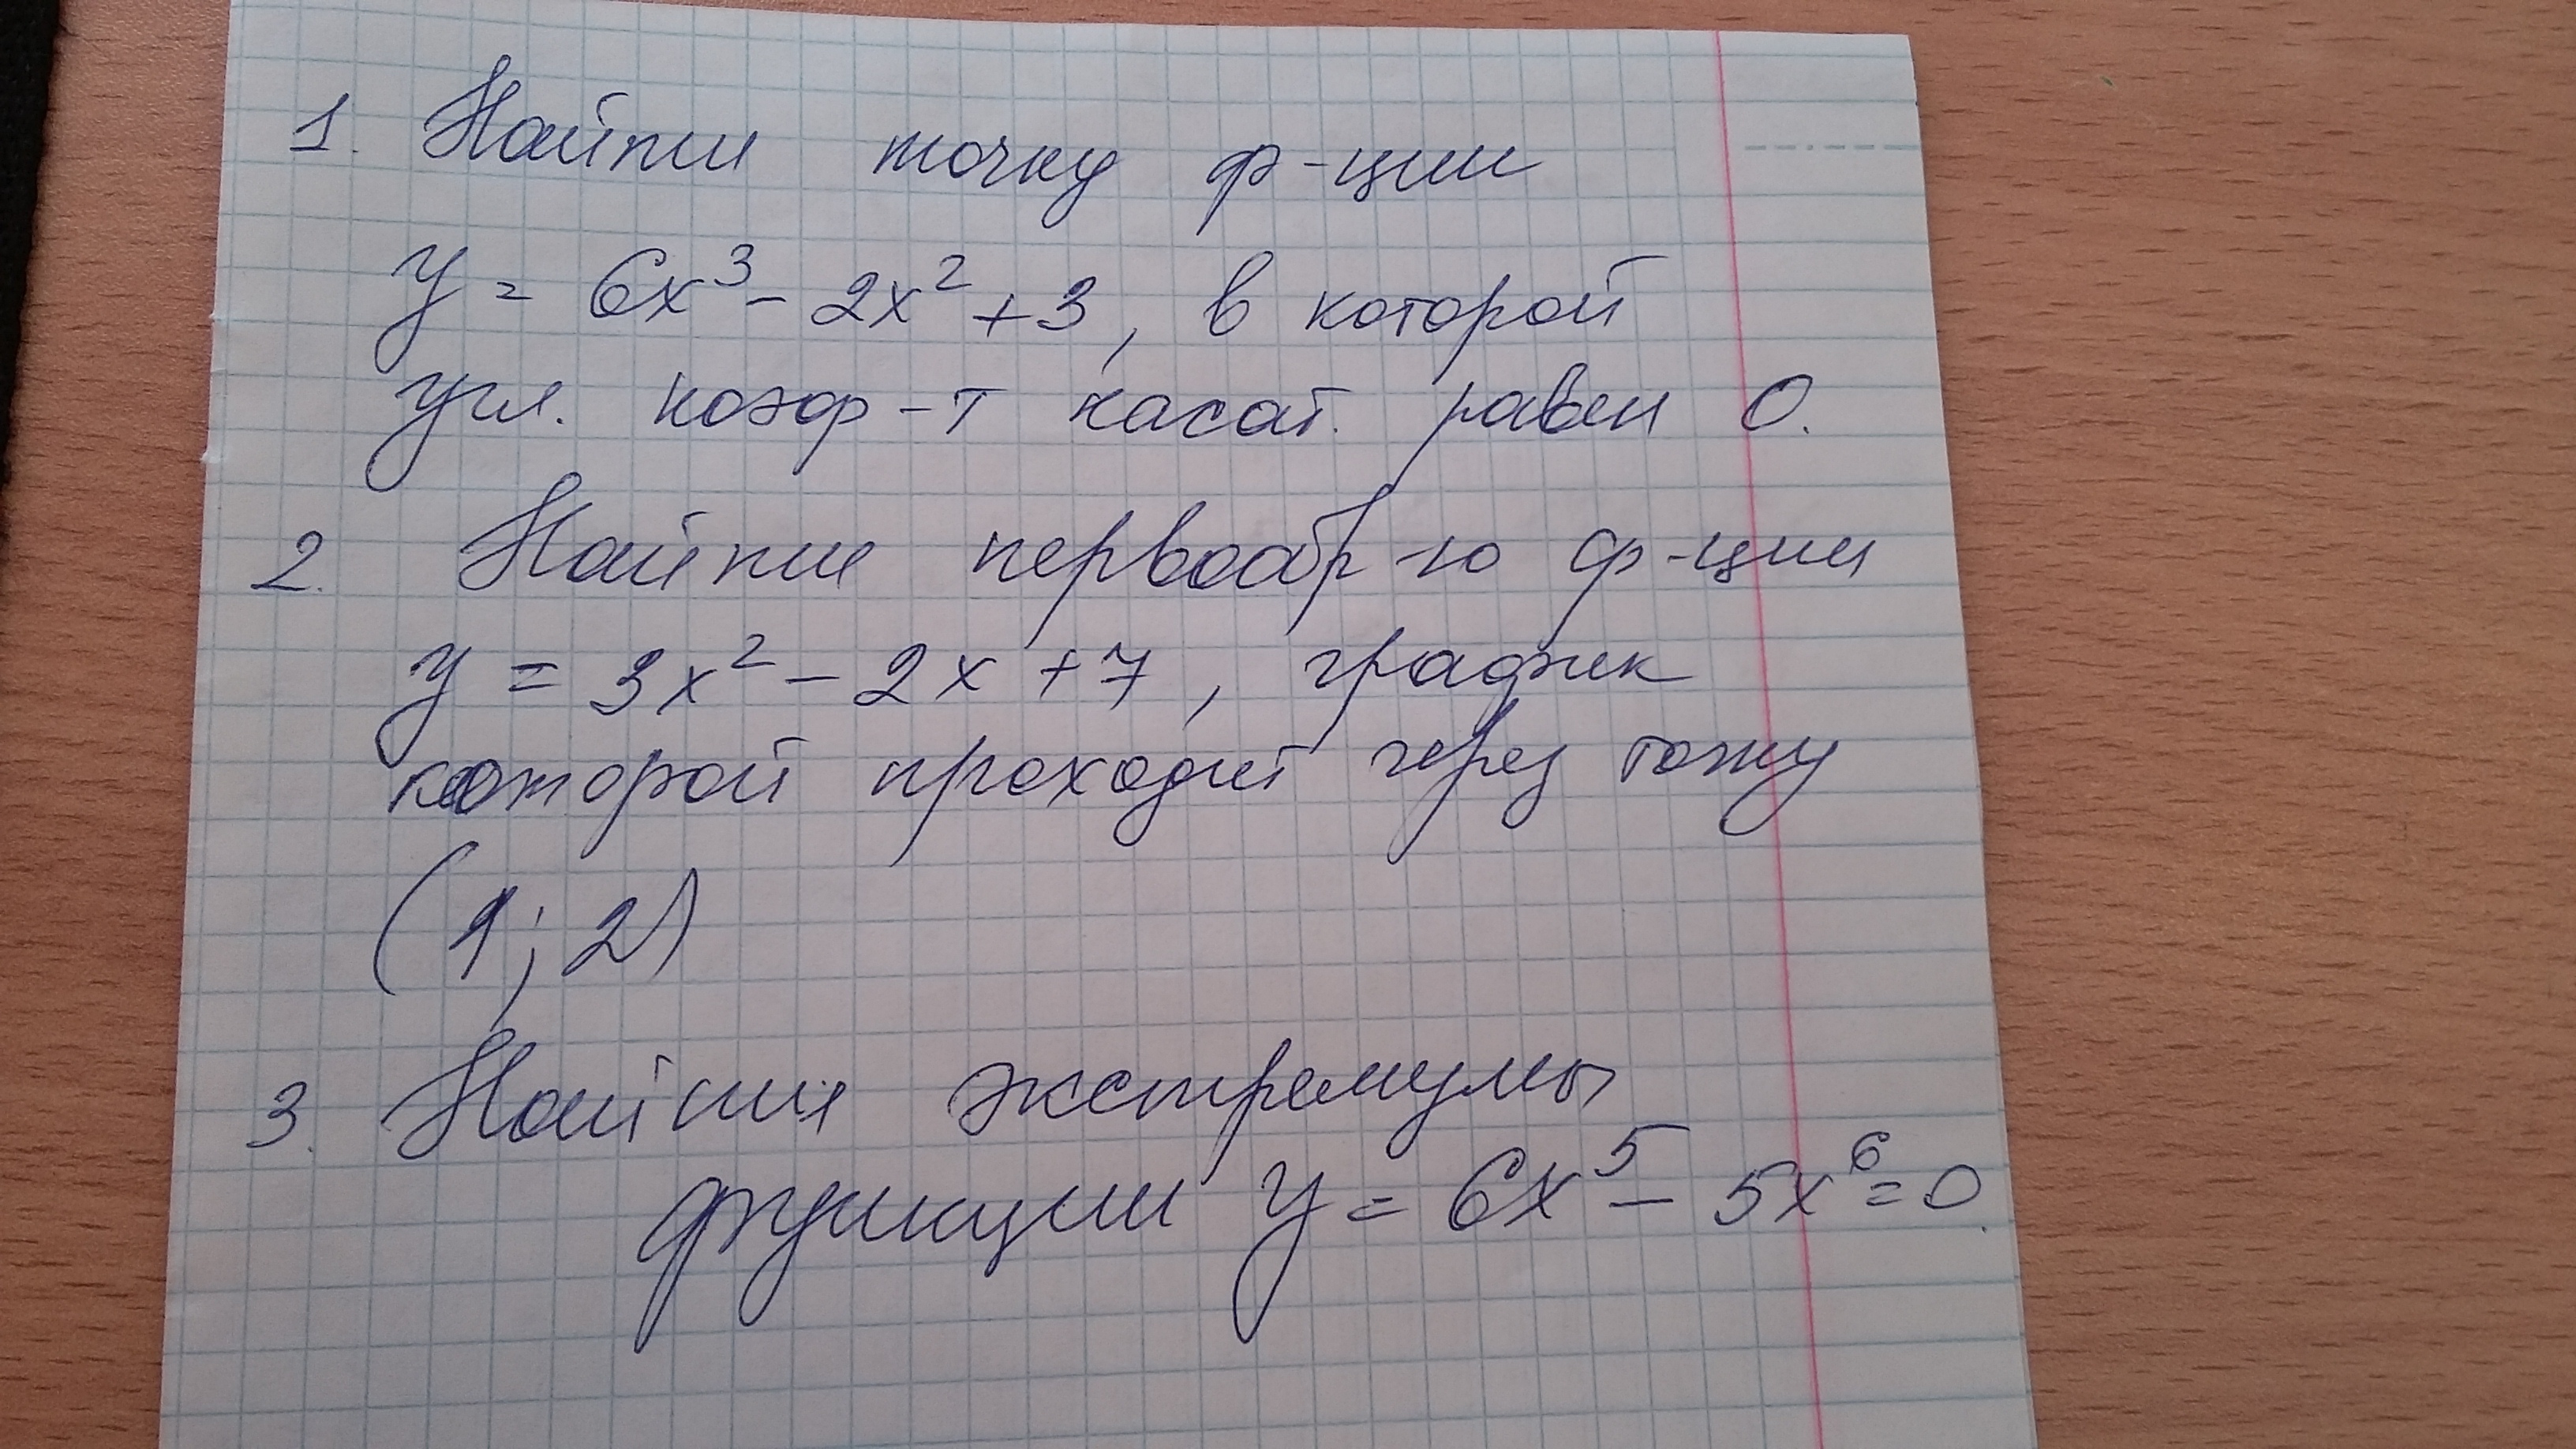 1. Найти точку ф-ции
y = 6x³ - 2x² + 3, в которой
угл. коэф-т касат. равен 0.
2. Найти первообр-ю ф-ции
y = 3x² - 2x + 7, график
которой проходит через точку
(1; 2)
3. Найти экстремумы
функции y = 6x⁵ - 5x⁶ = 0.